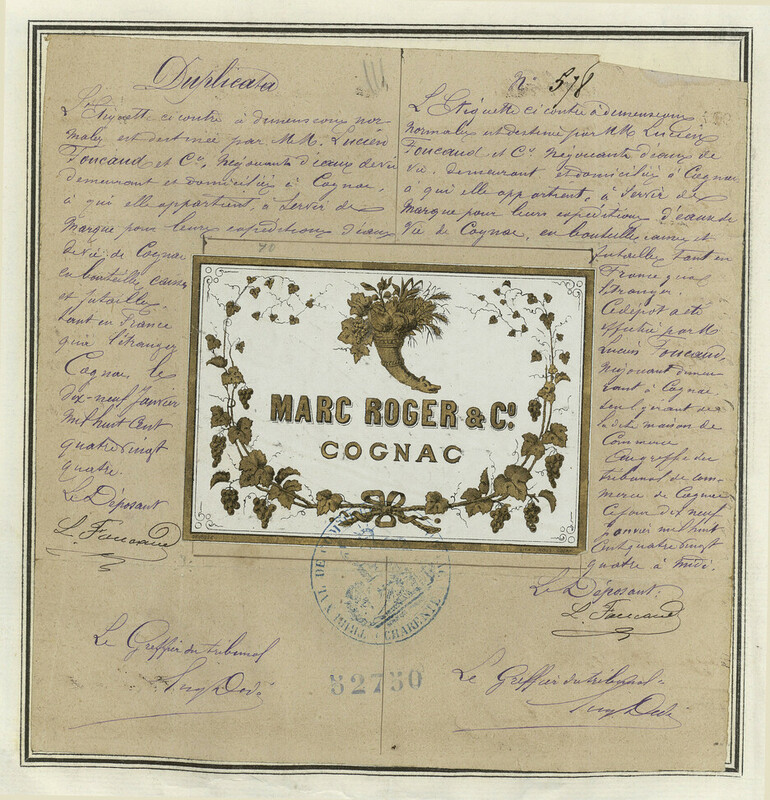 Duplicata
L'Etiquette ci contre à dimensions nor
males est destinée par MM. Lucien
Foucaud et Cie, négociants d'eaux de vie
demeurant et domiciliés à Cognac,
à qui elle appartient, à servir de
Marque pour leurs expéditions d'eaux
de vie de Cognac
en bouteilles, caisses
et futailles.
tant en France
qu'à l'étranger
Cognac le
dix-neuf Janvier
mil huit cent
quatre vingt
quatre.
Le Déposant
L. Foucaud
Le Greffier du tribunal
N° 578
L'Etiquette ci contre à dimensions
normales est destinée par MM Lucien
Foucaud et Cie négociants d'eaux de
vie, demeurant et domiciliés à Cognac
à qui elle appartient, à servir de
Marque pour leurs expéditions d'eaux de
Vie de Cognac, en bouteilles caisses et
futailles tant en
France qu'à
l'étranger.
Ce dépôt a été
effectué par M
Lucien Foucaud,
négociant demeu
rant à Cognac
seul gérant de
la dite maison de
Commerce
Au greffe du
tribunal de com
merce de Cognac
ce jour dix neuf
janvier mil huit
cent quatre vingt
quatre à midi.
Le Déposant.
L. Foucaud
Le Greffier du tribunal
MARC ROGER & Co.
COGNAC
CHARENTE
52750